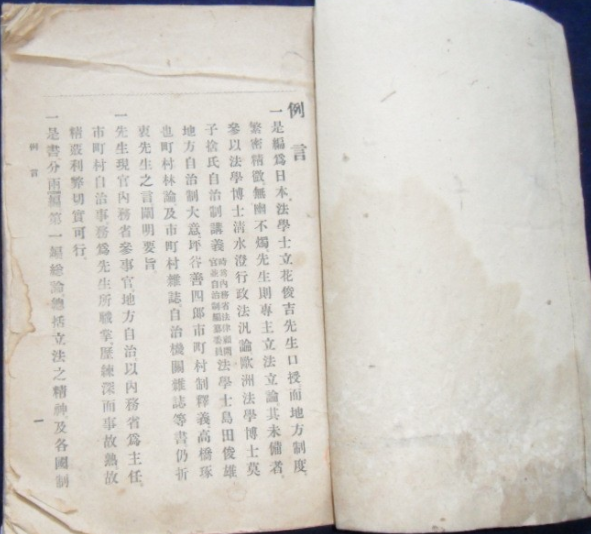 例言
一是編爲日本法學士立花俊吉先生口授而地方制度、
繁密精微無幽不燭、先生則專主立法立論、其未備者、
參以法學博士淸水澄行政法汎論歐洲法學博士莫
子徐氏自治制講義時爲內務省法律顧問官兼自治制編纂委員法學士島田俊雄
地方自治制大意、坪谷善四郞市町村制釋義高橋琢
也町村林論及市町村雜誌自治機關雜誌等書仍折
衷先生之言闡明要旨、
一先生現官內務省參事官、地方自治以內務省爲主任、
市町村自治事務爲先生所職掌、歷練深而事故熟故
精蔽利弊切實可行、
一是書分兩編第一編總論總括立法之精神及各國制
例言
一